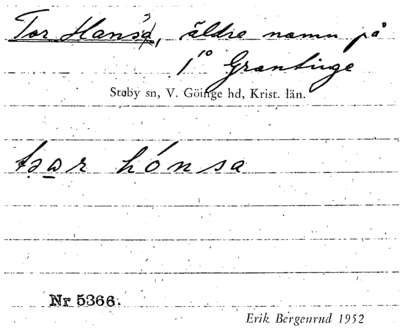 Tor Hans's, äldre namn på
1° Grantinge
Stoby sn, V. Göinge hd, Krist. län.
tɔar hónsa
Nr 5366.
Erik Bergenrud 1952